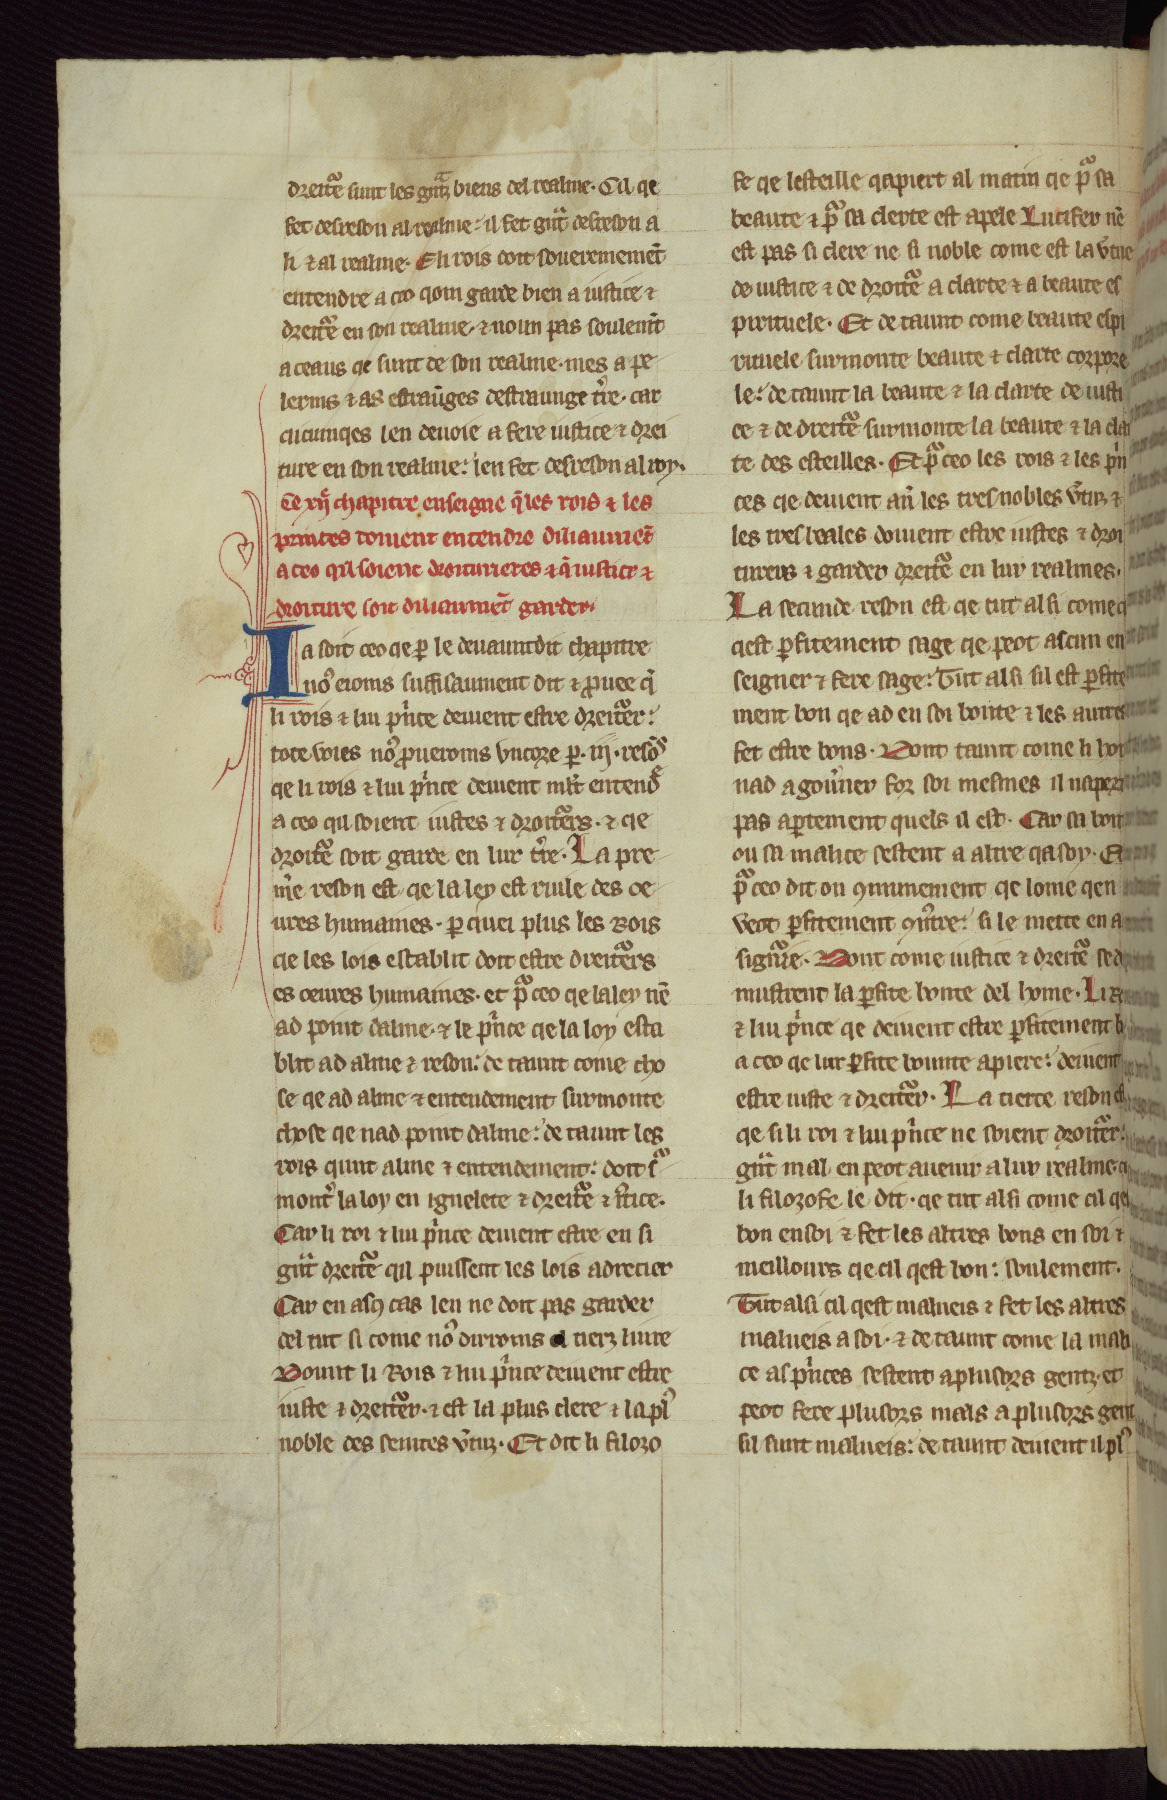 dreit̃e sunt les gñtz biens del realme. Cil qe
fet desreson al realme: il fet gñt desreson a
li ⁊ al realme. E li rois doit soverinemẽt
entendre a ceo qom garde bien a iustice ⁊
dreit̃e en son realme. ⁊ noun pas soulemẽt
a ceaus qe sunt de son realme. mes a pe-
lerins ⁊ as estraũges destraunge t̃re. car
cucunqes len devoie a fere iustice ⁊ drei
ture en son realme: len fet desreson al roy.
Le xij̃ chapitre enseigne q̃ les rois ⁊ les
princes doivent entendre diliaumẽt
a ceo qil soient droitureres ⁊ q̃ iustice ⁊
droiture soit diliaumẽt garder.
Ia soit ceo qe p̱ le devauntdit chapitre
no᷒ eioms suffisaument dit ⁊ p̃vee q̃
li rois ⁊ lui p̃nce deivent estre dreit̃er:
totevoies no᷒ p̃veroms uncore p̱ .iij. resõs
qe li rois ⁊ lui p̃nce deivent ml̃t entend̃
a ceo qil soient iustes ⁊ droit̃ers. ⁊ qe
droit̃e soit garde en lur t̃re. La pre-
m̃e reson est qe la ley est riule des oe-
vres humaines. p̱ quei plus les Rois
qe les lois establit doit estre dreit̃ers
es oevres humaines. et p̃ ceo qe la ley nẽ
ad point dalme. ⁊ le p̃nce qe la loy esta
blit ad alme ⁊ reson: de taunt come cho
se qe ad alme ⁊ entendement surmonte
chose qe nad point dalme: de taunt les
rois qunt alme ⁊ entendement: doit s̃
mont̃ la loy en iguelete ⁊ dreit̃e ⁊ iʳtice.
Car li roi ⁊ lui p̃nce deivent estre en si
gñt dreit̃e qil puissent les lois adrecier
Car en asq̃ cas len ne doit pas garder
del tut si come no᷒ diroms el tierz livre
Dount li Rois ⁊ lui p̃nce deivent estre
iuste ⁊ dreit̃er. ⁊ est la plus clere ⁊ la pl᷒
noble des seintes ṽtuz. Et dit li filozo
fe qe lesteille qapiert al matin qe p̃ sa
beaute ⁊ p̃ sa clerte est apele Lucifer nẽ
est pas si clere ne si noble come est la ṽtue
de iustice ⁊ de droit̃e a clarte ⁊ a beaute es
pirituele. Et de taunt come beaute espi
rituele surmonte beaute ⁊ clarte corpore
le: de taunt la beaute ⁊ la clarte de iusti
ce ⁊ de dreit̃e surmonte la beaute ⁊ la clar
te des esteilles. Et p̃ ceo les rois ⁊ les p̃n
ces qe deivent aũ les tres nobles ṽtuz ⁊
les tres beales doivent estre iustes ⁊ droi
turers ⁊ garder dreit̃e en lur realmes.
La secunde reson est qe tut alsi come
qest p̱fitement sage qe peot ascun en
seigner ⁊ fere sage: Tut alsi sil est p̱fite
ment bon qe ad en soi bonte ⁊ les autres
fet estre bons. Dont taunt come li hom
nad a goṽner for soi mesmes il napert
pas ap̱tement quels il est. Car sa bont
ou sa malice sestent a altre qa soy. Et
p̃ ceo dit on ꝯmunement qe lome qen
veot p̱fitement ꝯn̄tre: si le mette en a
signr̃ie. Dont come iustice ⁊ dreit̃e se d
mustrent la p̱fite bonte del home. Li
⁊ lui p̃nce qe deivent estre p̱fitement b
a ceo qe lur p̱fite bounte apiere: deivent
estre iuste ⁊ dreit̃er. La tierce reson est
qe si li roi ⁊ lui p̃nce ne soient droit̃er:
gñt mal en peot avenir a lur realme. c
li filozofe le dit. qe tut alsi come cil qe
bon en soi ⁊ fet les altres bons en soi ⁊
meillours qe cil qest bon: soulement.
Tut alsi cil qest malveis ⁊ fet les altres
malveis a soi. ⁊ de taunt come la mali
ce as p̃nces sestent a plusors gentz. et
peot fere plusors mals a plusors gent
sil sunt malveis: de taunt deivent il pl᷒